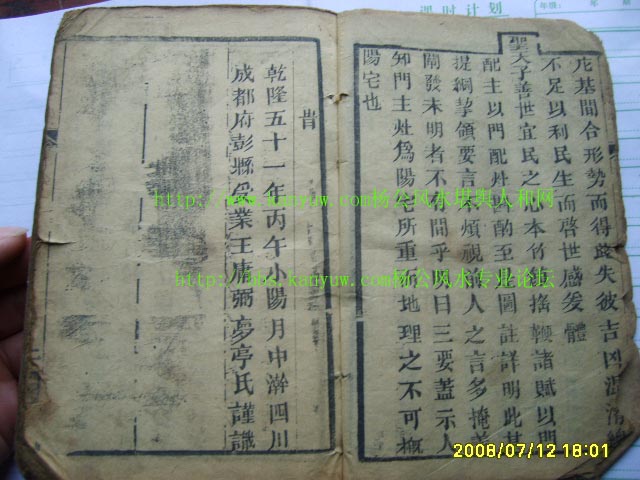 课时计划
年级:
基間合形勢而得失彼吉凶混
不足以利民生而啓世惑爰體
聖天子善世宜民之心本竹搖鞭諸賦以門
配主以門配灶酌至圖註詳明此其
提綱挈領要言不煩視人之言多掩
闡發未明者不間乎日三要蓋示人
知門主灶為陽宅所重而地理之不可概
陽宅也
旹
乾隆五十一年丙午小陽月中澣四川
成都府彭縣業王庸弼夢亭氏謹識
www.kanyuw.com杨公风水堪舆人和网
http://bbs.kanyuw.com杨公风水专业论坛
2008/07/12 18:01